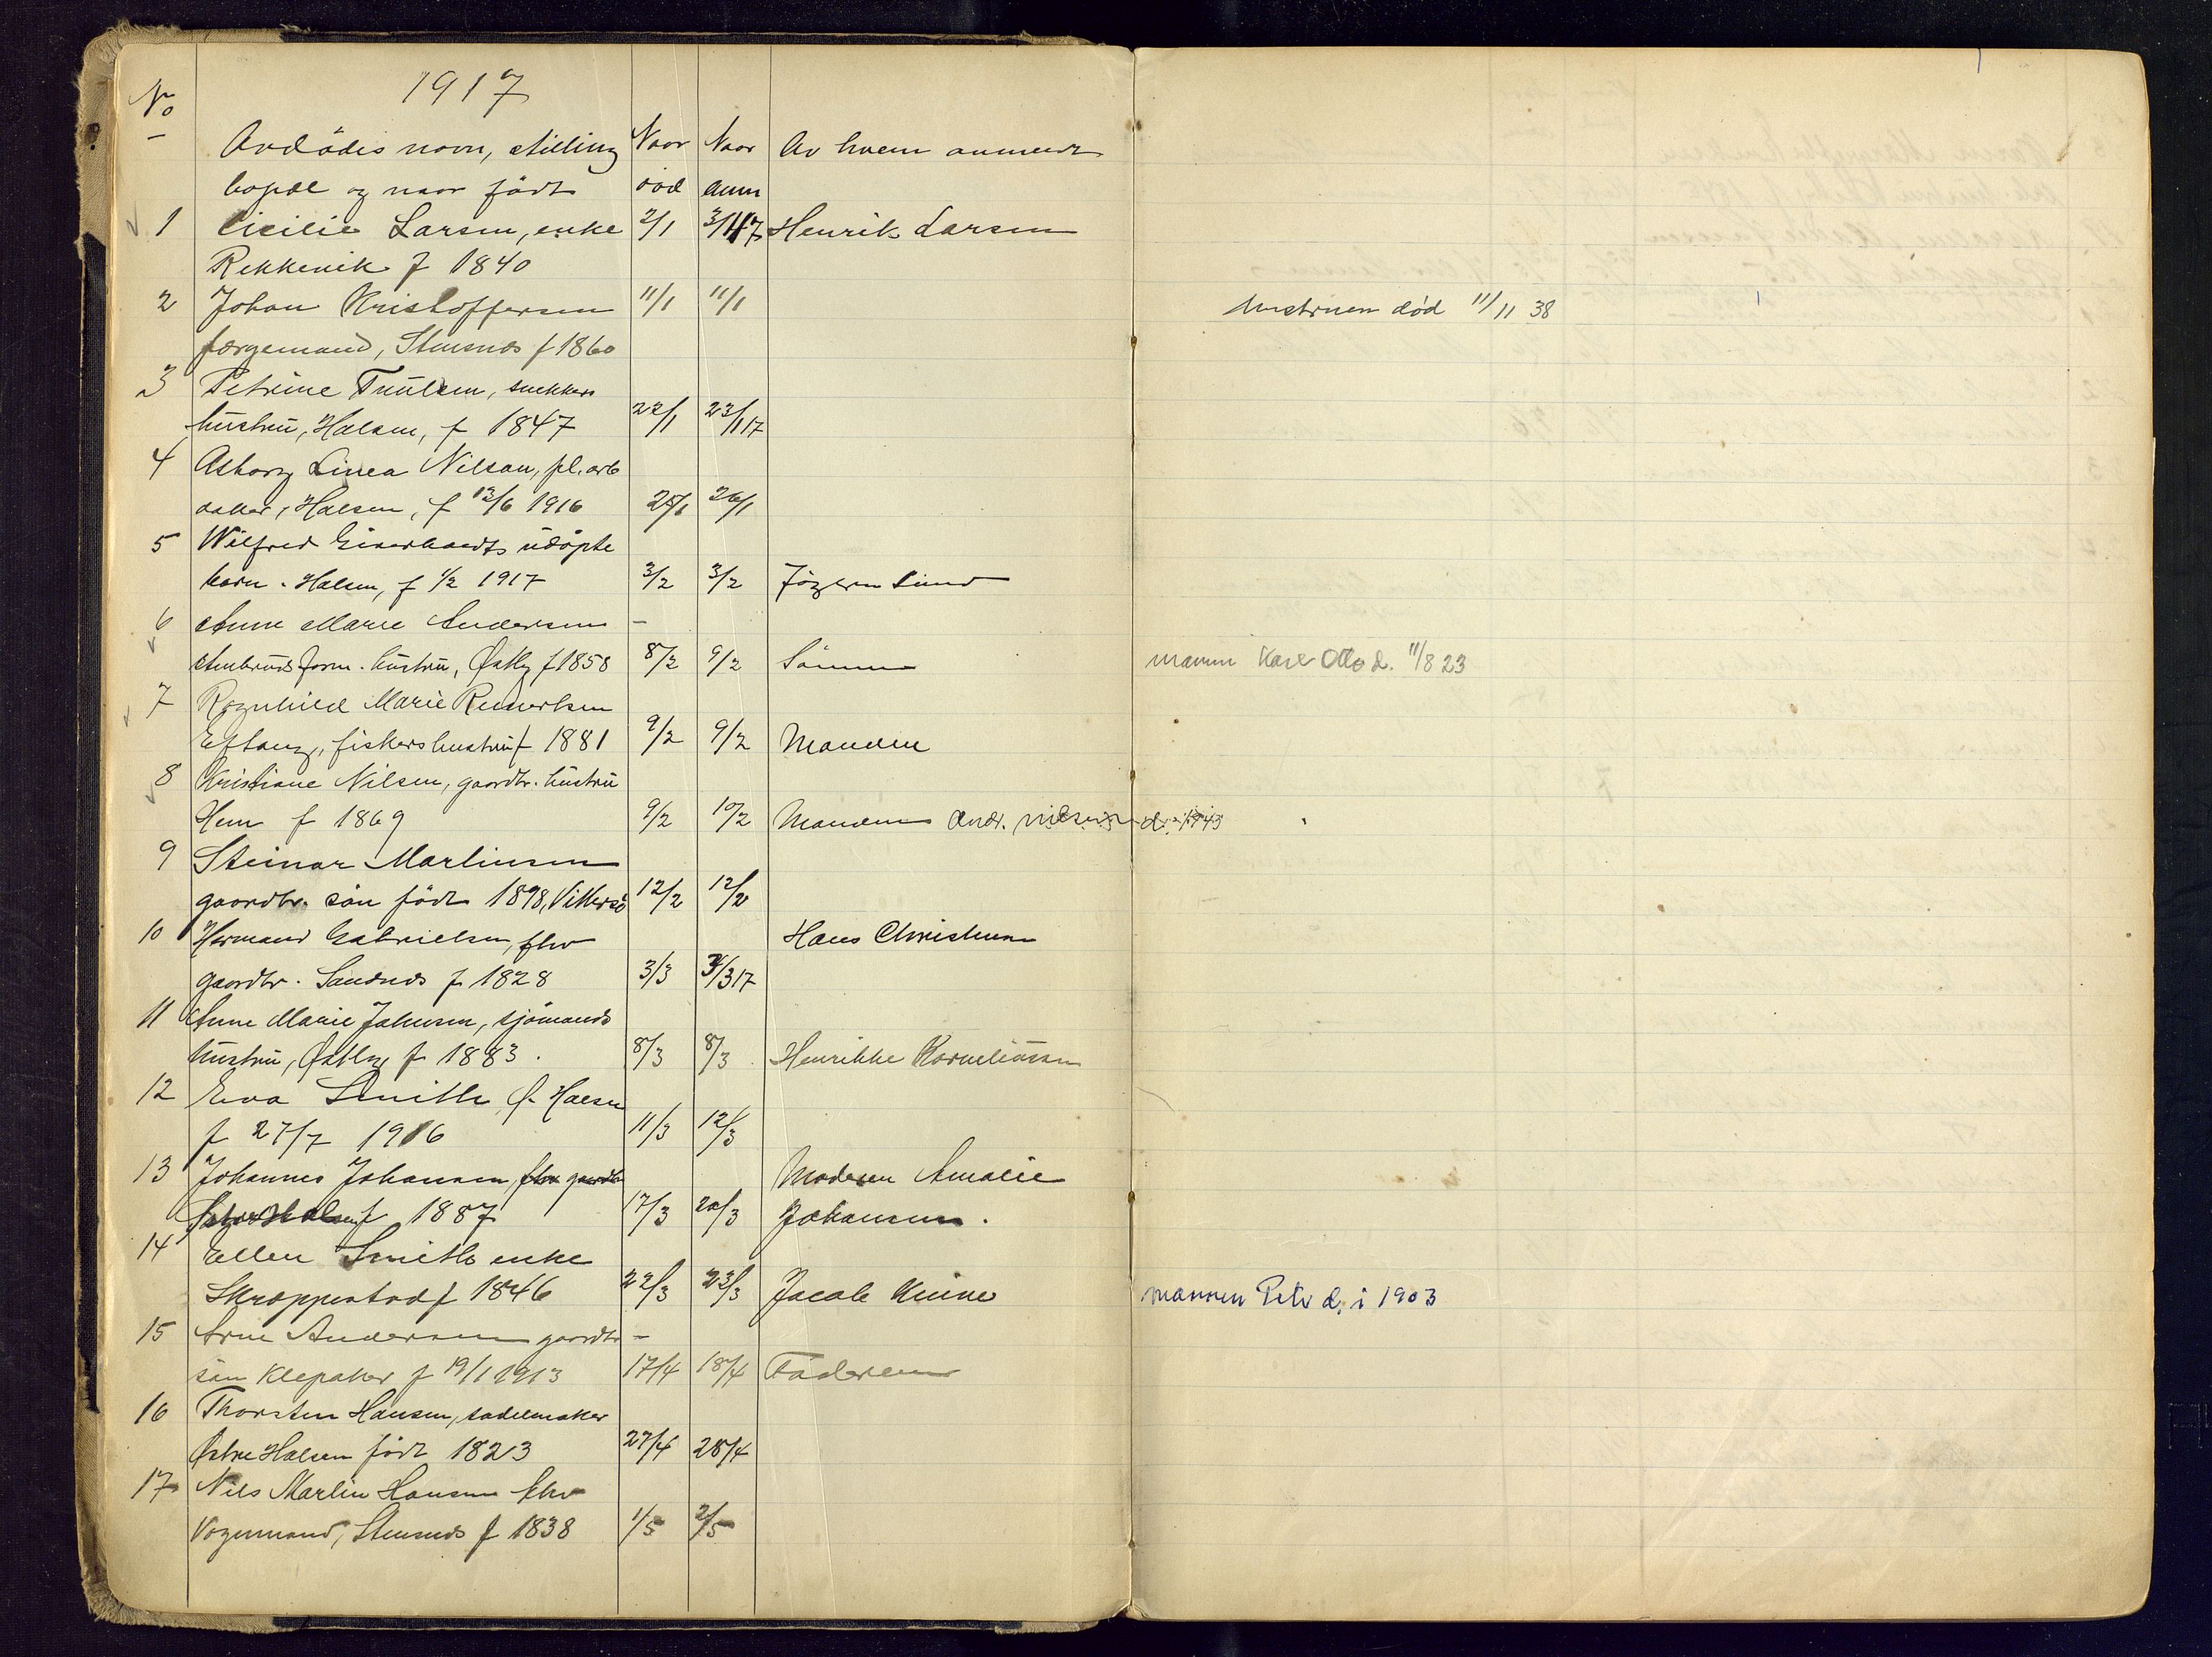 No
1917
Avdødes navn, stilling Naar Naar Av hvem anmeldt
bopæl og naar født død anm
1 Cicilie Larsen, enke 2/1 3/1 17 Henrik Larsen
Rekkevik f 1840
2 Johan Kristoffersen 11/1 11/1
færgemand, Stensnes f 1860
hustruen død 11/11 38
3 Petrine Truulsen, snekkers
hustru, Halsen, f 1847 22/1 23/1 17
4 Asborg Linea Nilsen, pl. arb
datter, Halsen, f 13/6 1916 25/1 26/1
5 Wilfred Eiverhardts udøpte
barn. Halsen, f 1/2 1917 3/2 3/2 Jörgen Lund
6 Anne Marie Andersen –
stenbruds form. hustru, Østby f 1858 8/2 9/2 Sønnen
mannen Karl Otto d. 11/8 23
7 Ragnhild Marie Reinertsen
Eftang, fiskers hustru f 1881 9/2 9/2 Manden
8 Kristiane Nilsen, gaardbr. hustru
Hem f 1869 9/2 10/2 Manden Andr. Nilsen d. 1943
9 Steinar Martinsen
gaardbr. søn født 1898, Vittersö 12/2 12/2
10 Hermand Gabrielsen, fhv Hans Christensen
gaardbr. Sandnes f 1828 3/3 3/3 17
11 Anne Marie Johnsen, sjömands
hustru, Østby f 1883. 8/3 8/3 Henrikke Korneliussen
12 Eva Smith Ø. Halsen
f 27/7 1916 11/3 12/3
13 Johannes Johansen, fhv gaardbr Moderen Amalie
f 1887 17/3 20/3 Johansen.
14 Ellen Smith enke
Skreppestad f 1846 22/3 23/3 Jacob Kinne
mannen Petr d. i 1903
15 Arne Andersen gaardbr –
søn Klepaker f 19/1 1913 17/4 18/4 Faderen
16 Thorsten Hansen, sadelmaker
Østre Halsen født 1823 27/4 28/4
17 Nils Martin Hansen fhv
Vognmand, Stensnes f 1838 1/5 2/5